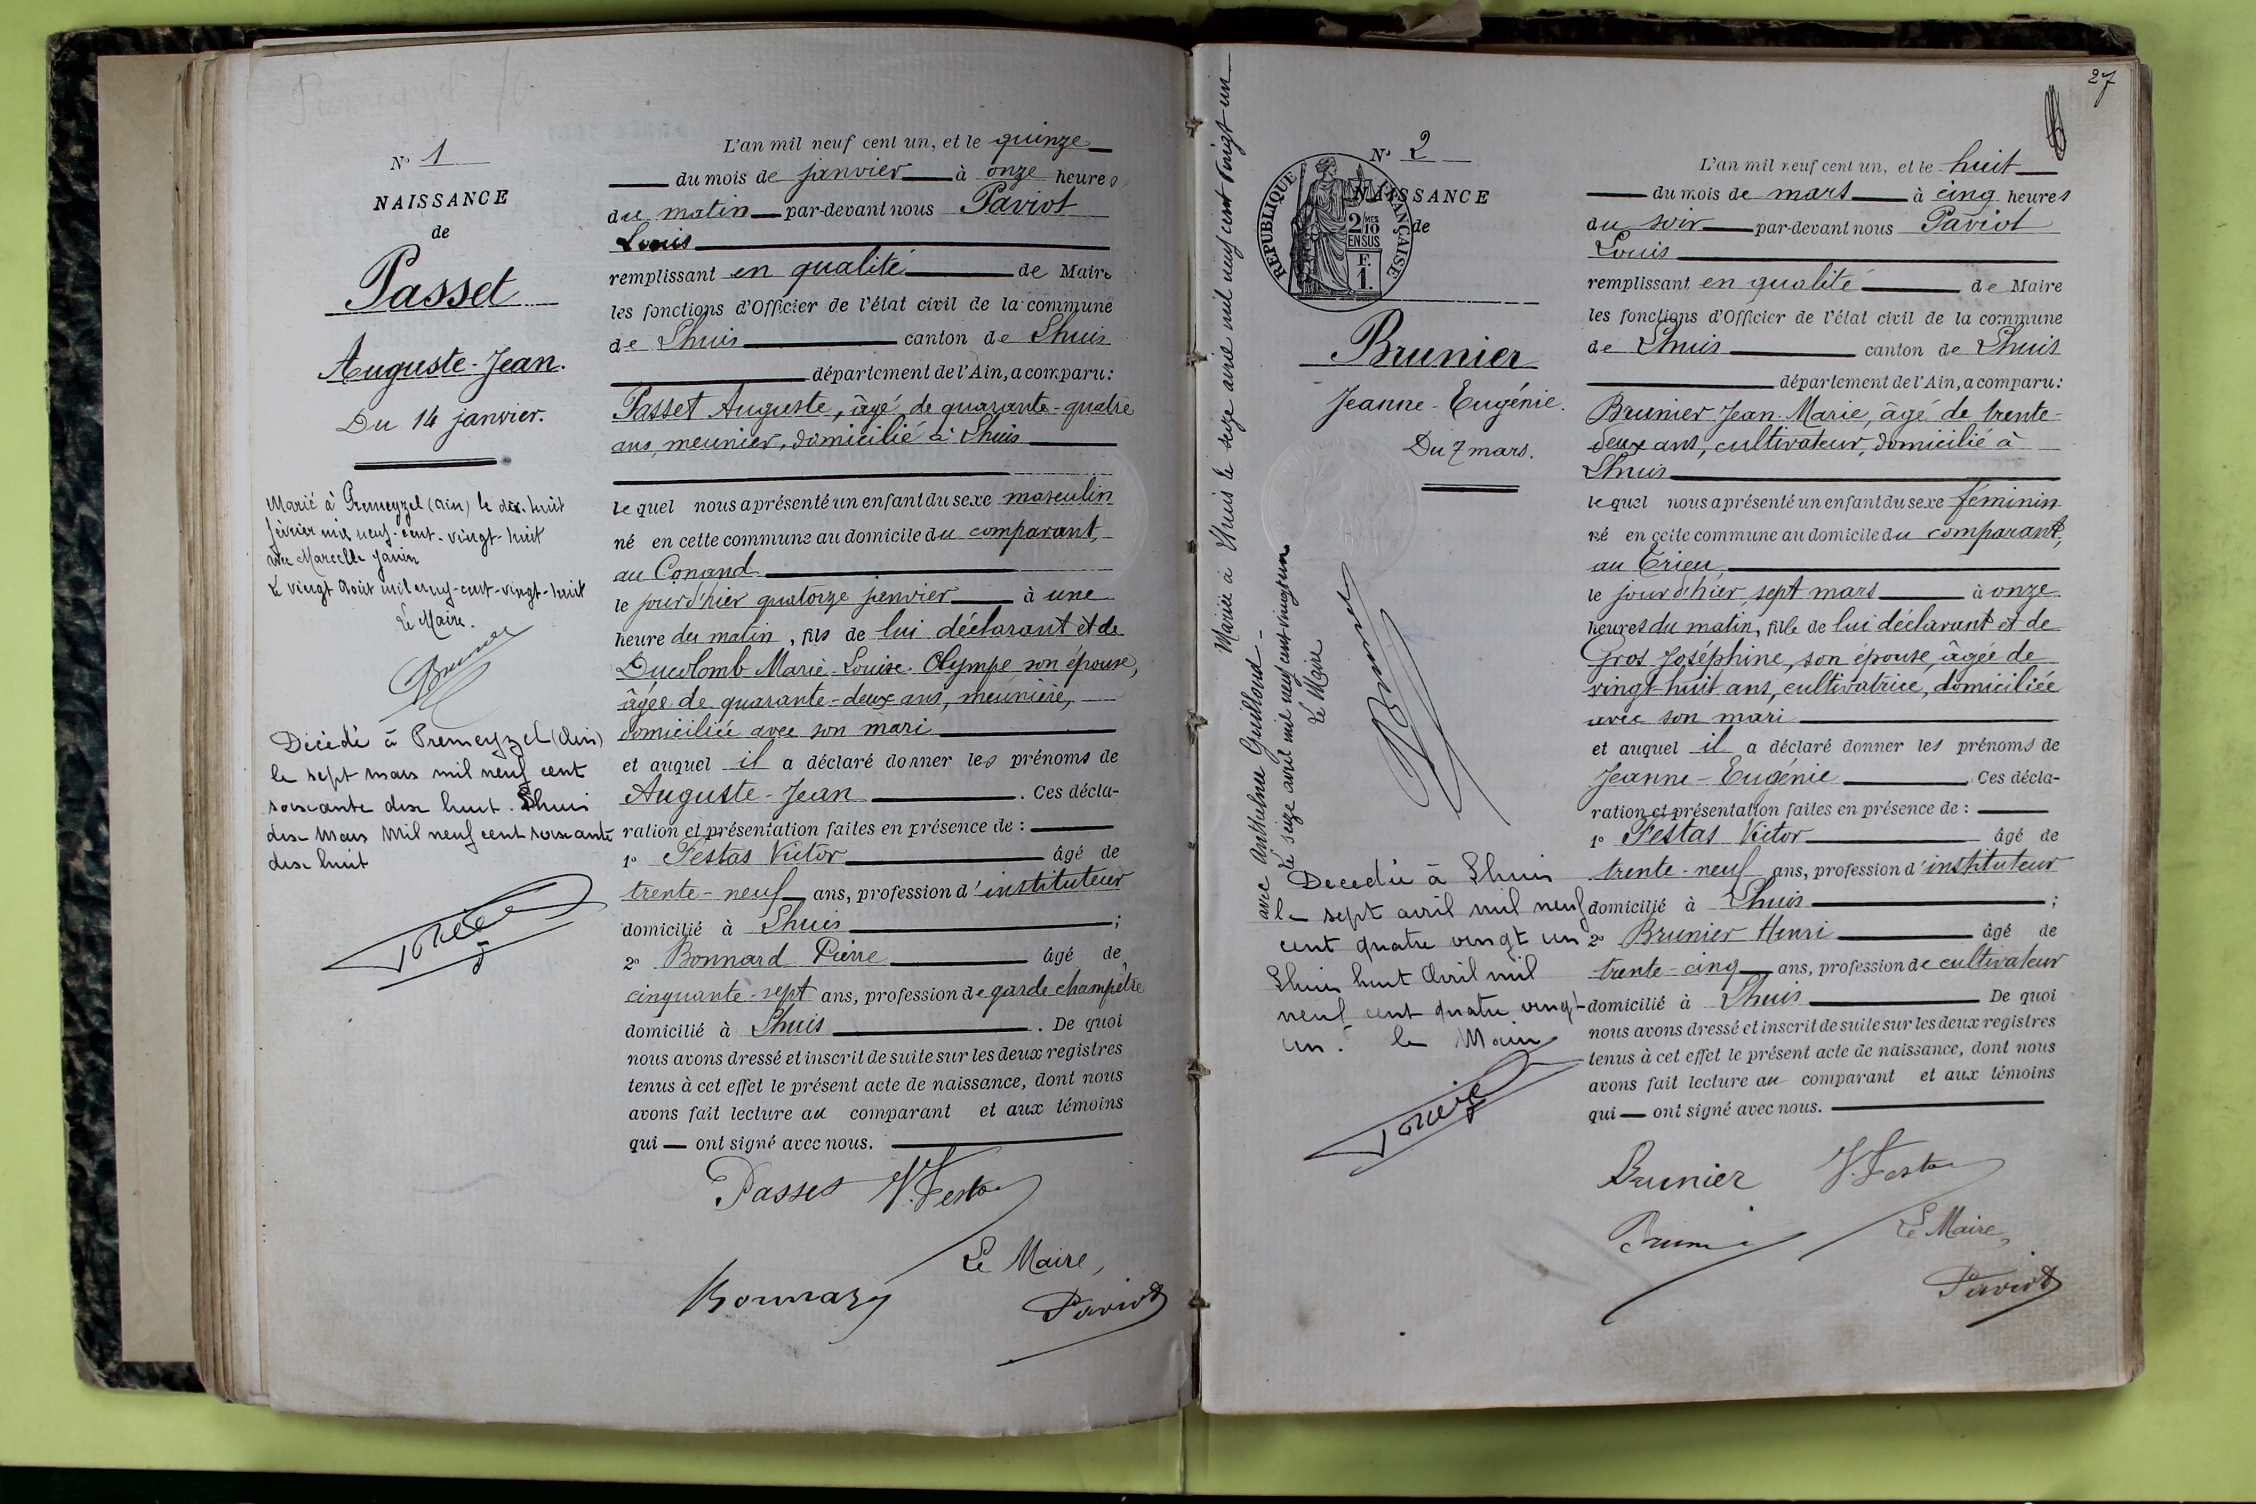 N° 1
NAISSANCE
de
Passet
Auguste-Jean.
Du 14 janvier.
Marié à Premeyzel (Ain) le dix-huit
février mil neuf-cent-vingt-huit
avec Marcelle Janin
Le vingt Août mil neuf-cent-vingt-huit
Le Maire.
Décédé à Premeyzel (Ain)
le sept mars mil neuf cent
soixante dix huit. Lhuis
dix Mars Mil neuf cent soixante
dix huit
L'an mil neuf cent un, et le quinze
du mois de janvier à onze heures
du matin par-devant nous Paviot
Louis
remplissant en qualité de Maire
les fonctions d'Officier de l'état civil de la commune
de Lhuis canton de Lhuis
département de l'Ain, a comparu:
Passet Auguste, âgé de quarante-quatre
ans, meunier, domicilié à Lhuis
lequel nous a présenté un enfant du sexe masculin
né en cette commune au domicile du comparant,
au Conand
le jour d'hier quatorze janvier à une
heure du matin, fils de lui déclarant et de
Ducolomb Marie-Louise-Olympe son épouse,
âgée de quarante-deux ans, meunière,
domiciliée avec son mari
et auquel il a déclaré donner les prénoms de
Auguste-Jean. Ces décla-
ration et présentation faites en présence de:
1° Festas Victor âgé de
trente-neuf ans, profession d'instituteur
domicilié à Lhuis;
2° Bonnard Pierre âgé de
cinquante-sept ans, profession de garde champêtre
domicilié à Lhuis. De quoi
nous avons dressé et inscrit de suite sur les deux registres
tenus à cet effet le présent acte de naissance, dont nous
avons fait lecture au comparant et aux témoins
qui ont signé avec nous.
Passet V. Festas
Le Maire,
Bonnard Paviot
27
Mariée à Lhuis le seize avril mil neuf cent vingt-un
avec Anthelme Guilloud
Le seize avril mil neuf cent vingt un
Le Maire
N° 2
REPUBLIQUE FRANÇAISE
2 MES
10
EN SUS
F.
1.
NAISSANCE
de
Brunier
Jeanne-Eugénie.
Du 7 mars.
Decedée à Lhuis
le sept avril mil neuf
cent quatre vingt un
Lhuis huit Avril mil
neuf cent quatre vingt-
un. le Maire
L'an mil neuf cent un, et le huit
du mois de mars à cinq heures
du soir par-devant nous Paviot
Louis
remplissant en qualité de Maire
les fonctions d'Officier de l'état civil de la commune
de Lhuis canton de Lhuis
département de l'Ain, a comparu:
Brunier Jean-Marie, âgé de trente-
deux ans, cultivateur, domicilié à
Lhuis
lequel nous a présenté un enfant du sexe féminin
né en cette commune au domicile du comparant,
au Crieu
le jour d'hier sept mars à onze
heures du matin, fille de lui déclarant et de
Gros Joséphine, son épouse, âgée de
vingt-huit ans, cultivatrice, domiciliée
avec son mari
et auquel il a déclaré donner les prénoms de
Jeanne-Eugénie Ces décla-
ration et présentation faites en présence de:
1° Festas Victor âgé de
trente-neuf ans, profession d'instituteur
domicilié à Lhuis;
2° Brunier Henri âgé de
trente-cinq ans, profession de cultivateur
domicilié à Lhuis De quoi
nous avons dressé et inscrit de suite sur les deux registres
tenus à cet effet le présent acte de naissance, dont nous
avons fait lecture au comparant et aux témoins
qui ont signé avec nous.
Brunier V. Festas
Le Maire,
Paviot